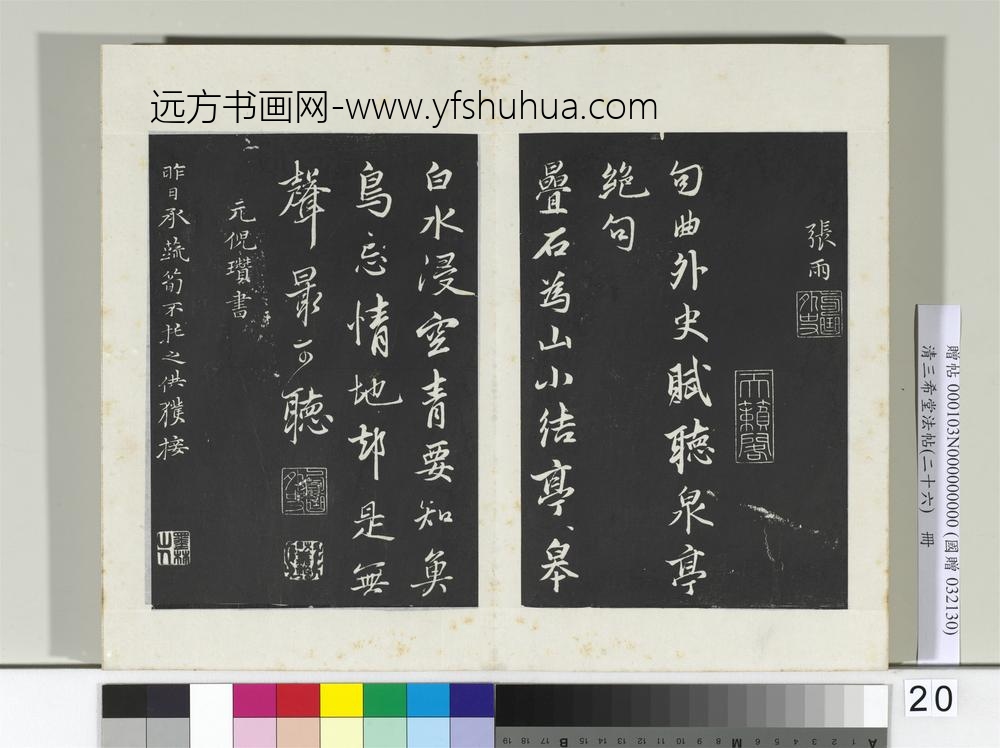 远方书画网-www.yfshuhua.com
張雨
句曲外史
天籟閣
句曲外史賦聽泉亭
絶句
疊石為山小結亭亭皋
白水浸空青要知魚
鳥忘情地却是無
聲最可聽
元倪瓚書
昨日承蔬筍不托之供獲接
墨林
贈帖 000103N000000000 (國贈 032130)
清三希堂法帖(二十六) 冊
20
A 1 2 3 4 5 6 M 8 9 10 11 12 13 14 15 B 17 18 19